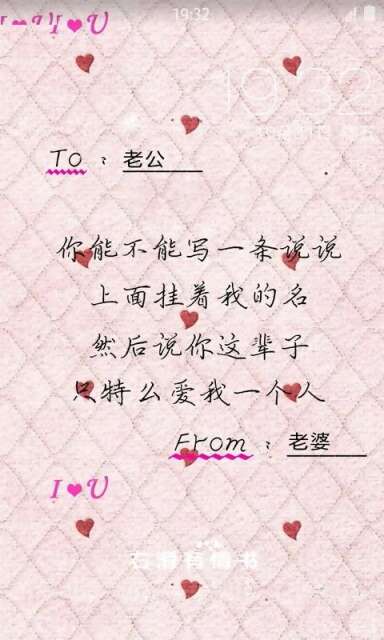 19:32
I❤U
19:32
To：老公
你能不能写一条说说
上面挂着我的名
然后说你这辈子
只特么爱我一个人
From：老婆
I❤U